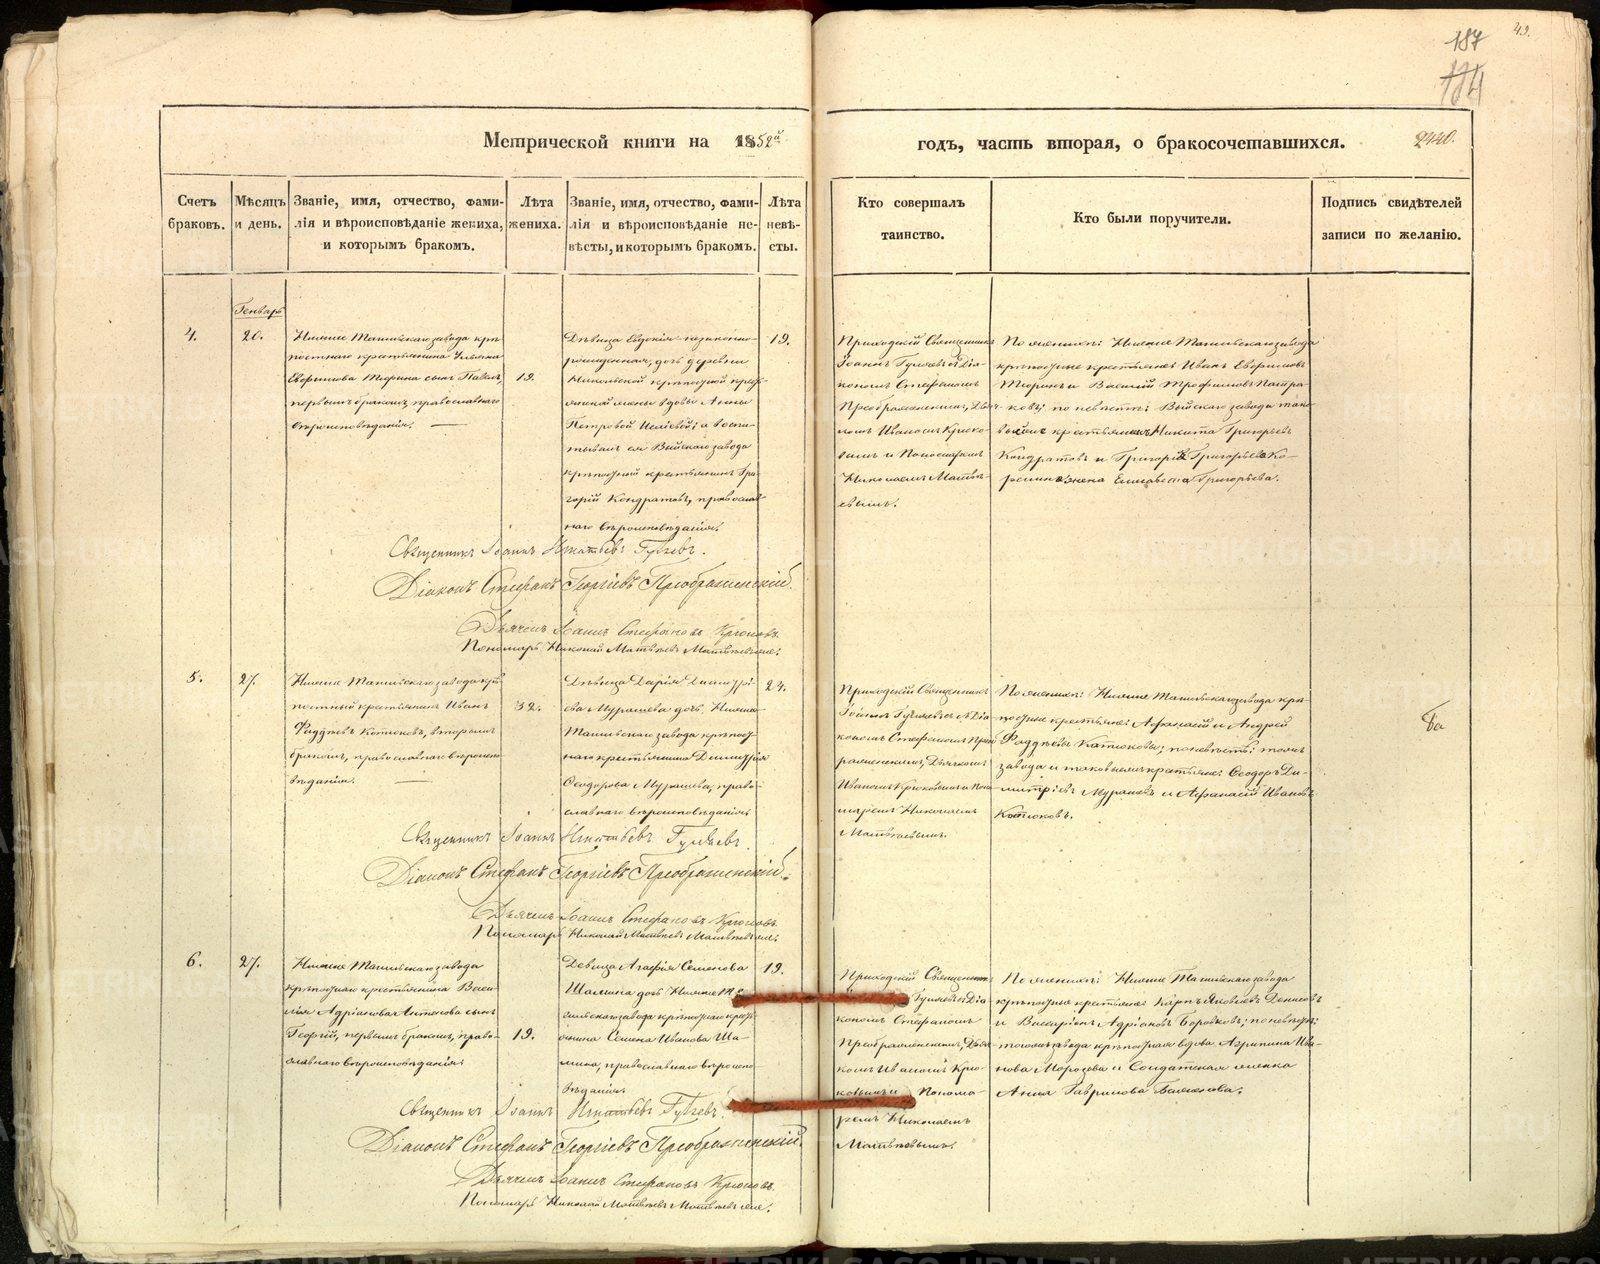 49.
187
Метрической книги на 1852й
годъ, часть вторая, о бракосочетавшихся.
2440.
Счетъ
браковъ.
Мѣсяцъ
и день.
Званіе, имя, отчество, фами-
лія и вѣроисповѣданіе жениха,
и которымъ бракомъ.
Лѣта
жениха.
Званіе, имя, отчество, фами-
лія и вѣроисповѣданіе не-
вѣсты, и которымъ бракомъ.
Лѣта
невѣ-
сты.
Кто совершалъ
таинство.
Кто были поручители.
Подпись свидѣтелей
записи по желанію.
Генварь
4.
20.
Нижне Тагильскаго завода крѣ-
постнаго крестьянина
сынъ Павелъ,
первымъ бракомъ, православнаго
вѣроисповѣданія.
19.
Дѣвица Евдокія незаконно-
рожденная, дочь деревни
Никольской крѣпостной крест-
вдовы Анны
Петровой а воспи-
Выйскаго завода
крѣпостный крестьянинъ Гри-
горій Кондратовъ, православ-
наго вѣроисповѣданія.
19.
Приходскій Священникъ
Іоаннъ Гуляевъ съ Діа-
кономъ Стефаномъ
Преображенскимъ, Дьяч-
комъ Иваномъ Крюко-
вымъ и Пономаремъ
Николаемъ Матвѣ-
евымъ.
По женихѣ: Нижне Тагильскаго завода
крѣпостные крестьяне: Иванъ
и Василій Трофимовъ
по невѣстѣ: Выйскаго завода тако-
крестьяне Никита Григорьевъ
Кондратовъ и Григорій Григорьева
жена Елисавета Григорьева.
Священникъ Іоаннъ Игнатьевъ Гуляевъ.
Діаконъ Стефанъ Георгіевъ Преображенскій.
Дьячекъ Іоаннъ Стефановъ Крюковъ.
Пономарь Николай Матвѣевъ
5.
27.
Нижне Тагильскаго завода крѣ-
постный крестьянинъ Иванъ
Фаддѣевъ Котюковъ, вторымъ
бракомъ, православнаго вѣроиспо-
вѣданія.
32.
Дѣвица Дарія Димитрі-
ева Мурашева дочь Нижне
Тагильскаго завода крѣпост-
наго крестьянина Димитрія
Ѳеодорова Мурашева, право-
славнаго вѣроисповѣданія.
24.
Приходскій Священникъ
Іоаннъ Гуляевъ съ Діа-
кономъ Стефаномъ Преоб-
раженскимъ, Дьячкомъ
Иваномъ Крюковымъ и Поно-
маремъ Николаемъ
Матвѣевымъ.
По женихѣ: Нижне Тагильскаго завода крѣ-
постные крестьяне: Афанасій и Андрей
Фаддѣевы Котюковы; по невѣстѣ: того же
завода и таковые же крестьяне: Ѳеодоръ Ди-
митріевъ Мурашевъ и Афанасій Ивановъ
Котюковъ.
Священникъ Іоаннъ Игнатьевъ Гуляевъ.
Діаконъ Стефанъ Георгіевъ Преображенскій.
Дьячекъ Іоаннъ Стефановъ Крюковъ.
Пономарь Николай Матвѣевъ
6.
27.
Нижне Тагильскаго завода
крѣпостнаго крестьянина Васи-
лія Адріанова Антонова сынъ
Георгій, первымъ бракомъ, право-
славнаго вѣроисповѣданія.
19.
Девица Агафія Семенова
Шамина дочь Нижне Та-
гильскаго завода крѣпостнаго крест-
янина Семена Иванова Ша-
мина, православнаго вѣроиспо-
вѣданія.
19.
Приходскій Священникъ
Гуляевъ съ Діа-
кономъ Стефаномъ
Преображенскимъ, Дьяч-
комъ Иваномъ Крю-
ковымъ и Понома-
ремъ Николаемъ
Матвѣевымъ.
По женихѣ: Нижне Тагильскаго завода
крѣпостные крестьяне: Карпъ Яковлевъ Денисовъ
и Виссаріонъ Адріановъ Боровковъ; по невѣстѣ:
того же завода крѣпостная вдова Агрипина Ива-
нова Морозова и Солдатская женка
Анна Гаврилова
Священникъ Іоаннъ Игнатьевъ Гуляевъ.
Діаконъ Стефанъ Георгіевъ Преображенскій.
Дьячекъ Іоаннъ Стефановъ Крюковъ.
Пономарь Николай Матвѣевъ